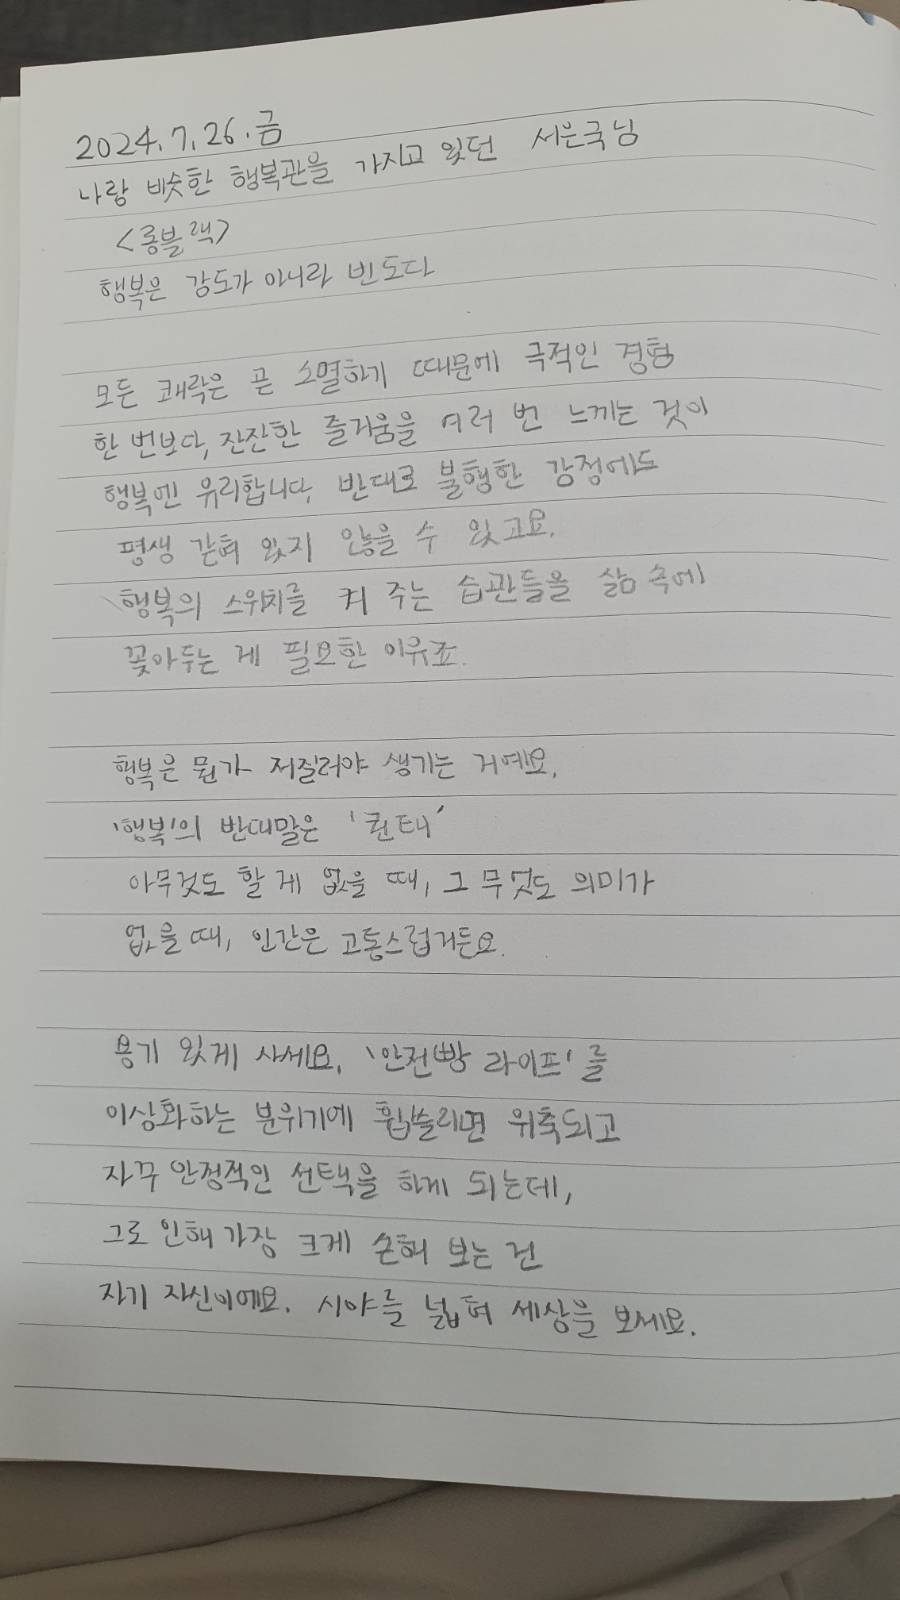 2024.7.26.금
나랑 비슷한 행복관을 가지고 있던 서은국님
<롱블랙>
행복은 강도가 아니라 빈도다
모든 쾌락은 곧 소멸하기 때문에 극적인 경험
한 번보다, 잔잔한 즐거움을 여러 번 느끼는 것이
행복엔 유리합니다. 반대로 불행한 감정에도
평생 갇혀 있지 않을 수 있고요.
행복의 스위치를 켜 주는 습관들을 삶 속에
꽂아두는 게 필요한 이유죠.
행복은 뭔가 저질러야 생기는 거예요.
'행복'의 반대말은 '권태'
아무것도 할 게 없을 때, 그 무엇도 의미가
없을 때, 인간은 고통스럽거든요.
용기 있게 사세요. '안전빵 라이프'를
이상화하는 분위기에 휩쓸리면 위축되고
자꾸 안정적인 선택을 하게 되는데,
그로 인해 가장 크게 손해 보는 건
자기 자신이에요. 시야를 넓혀 세상을 보세요.